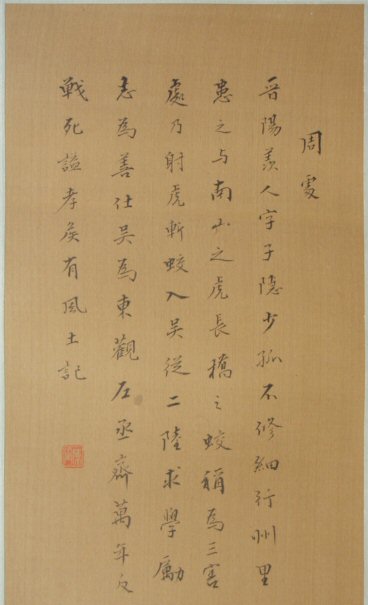 周處
晉陽羨人字子隱少孤不修細行州里
患之与南山之虎長橋之蛟稱為三害
處乃射虎斬蛟入吴從二陸求學勵
志為善仕吴為東觀左丞齊萬年反
戰死謚孝侯有風土記